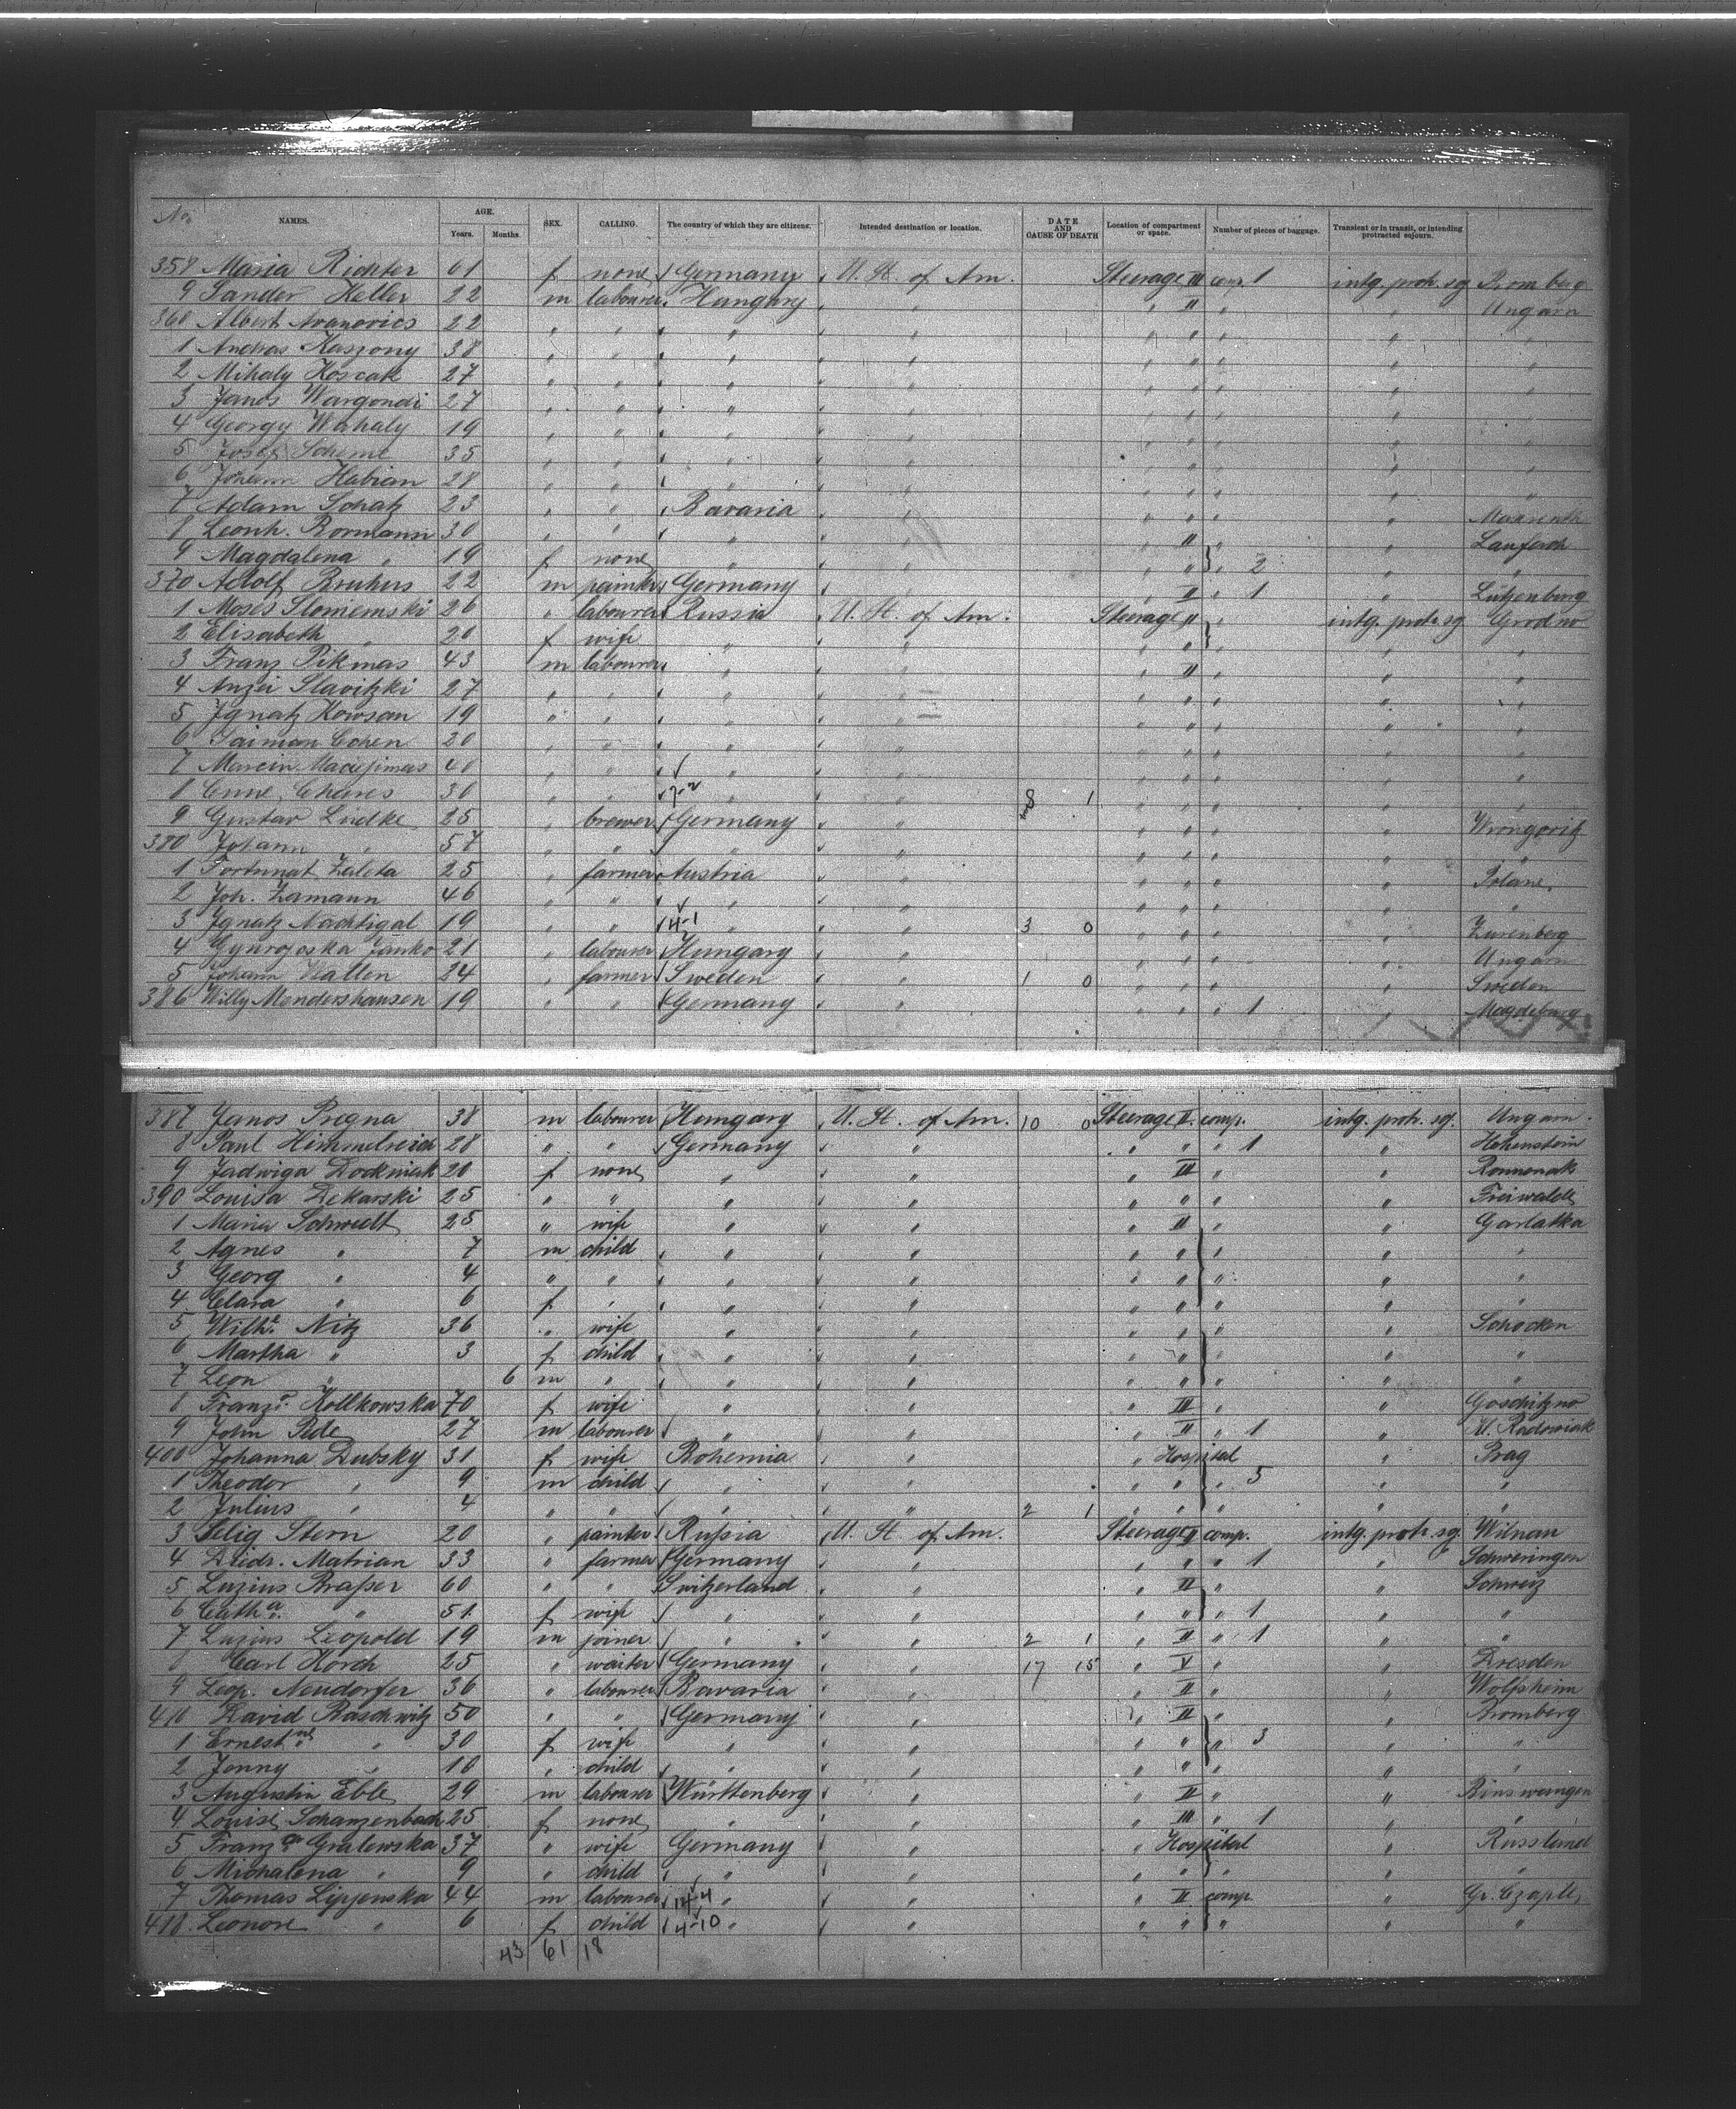 No. NAMES. AGE. Years. Months. SEX. CALLING. The country of which they are citizens. Intended destination or location. DATE AND CAUSE OF DEATH Location of compartment or space. Number of pieces of baggage. Transient or in transit, or intending protracted sojourn.
358 Maria Richter 61 f none Germany U. St. of Am. Steerage III comp. 1 intg. protr. sg. Bromberg
9 Sander Keller 22 m labourer Hungary " " II " " Ungarn
360 Albert 22 " " " " " " " " "
1 Andras Kaszony 38 " " " " " " " " "
2 Mihaly Koscak 27 " " " " " " " " "
3 Janos Wargondi 27 " " " " " " " " "
4 Georgy Wahaly 19 " " " " " " " " "
5 Josef 35 " " " " " " " " "
6 Johann Habian 28 " " " " " " " " "
7 Adam Schatz 23 " " Bavaria " " " " "
8 Leonh. Bormann 30 " " " " " II " "
9 Magdalena " 19 f none " " " " " 2 " "
370 Adolf Bruhns 22 m painter Germany " " II " 1 " Lützenburg
1 Moses Sloniemski 26 " labourer Russia U. St. of Am. Steerage II " intg. protr. sg. Grodno
2 Elisabeth " 20 f wife " " " " " " "
3 Franz Pikmas 43 m labourer " " " II " " "
4 Anzei Slavitzki 27 " " " " " " " " "
5 Ignatz Kowsan 19 " " " " " " " " "
6 Saiman Cohen 20 " " " " " " " " "
7 Marcin 40 " " " " " " " " "
8 Chaves 30 " " 7-2 " " 8 1 " " " " "
9 Gustav Lüdke 25 " brewer Germany " " " " "
380 Johann " 57 " " " " " " " " "
1 Fortunat Zaleta 25 " farmer Austria " " " " " Polane
2 Joh. Zamann 46 " " " " " " " " "
3 Ignatz Nachtigal 19 " " 4-1 " 3 0 " " " " Zurenberg
4 Janko 21 " labourer Hungary " " " " " Ungarn
5 Johann Kallen 24 " farmer Sweden " 1 0 " " " " Sweden
386 Willy Mendershausen 19 " Germany " " " " 1 " Magdeburg
387 Janos Pregna 38 m labourer Hungary U. St. of Am. 10 0 Steerage II. comp. intg. protr. sg. Ungarn
8 Paul Himmelreich 28 " " Germany " " " " 1 " Hohenstein
9 Jadwiga Dockniak 20 f none " " " III " "
390 Louisa Dekarski 25 " " " " " " " " Freiwalde
1 Maria Schwedt 25 " wife " " " III " " Garlatka
2 Agnes " 7 m child " " " " " " "
3 Georg " 4 " " " " " " " " "
4 Clara " 6 f " " " " " " " "
5 Wilhe. Nitz 36 " wife " " " " " " Schocken
6 Martha " 3 f child " " " " " " "
7 Leon " 6 m " " " " " " " "
8 Franza. Kollkowska 70 f wife " " " III " " Goschitzno
9 John Pde 27 m labourer " " " II " 1 "
400 Johanna Dubsky 31 f wife Bohemia " " Hospital " Prag
1 Theodor " 9 m child " " " " 5 " "
2 Julius " 4 " " " " 2 1 " " " " "
3 Selig Stern 20 " painter Rußia U. St. of Am. Steerage II comp. intg. protr. sg. Wilnau
4 Matrian 33 " farmer Germany " " " " 1 " Schweringen
5 Luzius Braßer 60 " " Switzerland " " II " " Schweiz
6 Catha. " 51 f wife " " " " " 1 " "
7 Luzius Leopold 19 m joiner " " 2 1 " II " 1 " "
8 Carl Horch 25 " waiter Germany " 17 15 " V " " Dresden
9 Leop. Neudorfer 36 " labourer Bavaria " " II " " Wolfsheim
410 David Raschwitz 50 " " Germany " " II " " Bromberg
1 Ernestine " 30 f wife " " " " " 3 " "
2 Jenny " 10 " child " " " " " "
3 Augustin Eble 29 m labourer Württenberg " " II " " Binswangen
4 Louise Schanzenbach 25 f none " " " III " 1 " "
5 Franzca Gralewska 37 " wife Germany " " Hospital " Russland
6 Michalena " 9 " child " " " " " "
7 Thomas Lipjenska 44 m labourer 14-4 " " " II comp. " Gr. Czaplle
418. Leonore " 6 f child 4-10 " " " " " " "
43 61 18